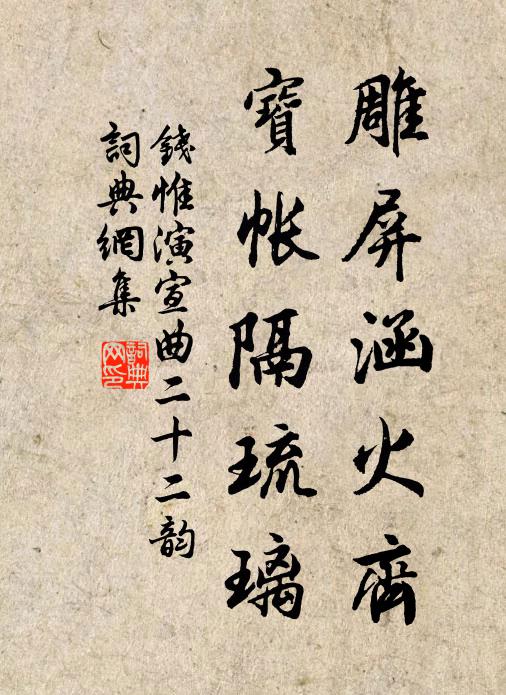 雕屏涵火齊
寶帐隔琉璃
錢惟演宣曲二十二韵
詞典網集
詞典
网印